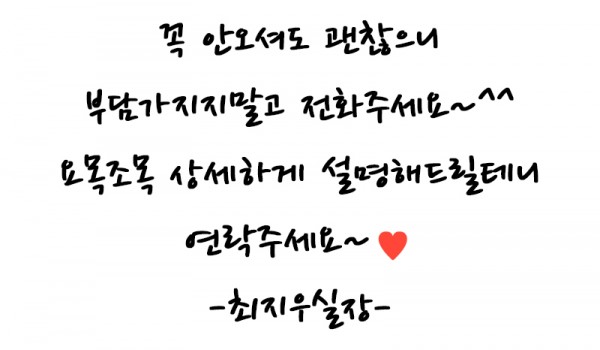 꼭 안오셔도 괜찮으니
부담가지지말고 전화주세요~^^
요목조목 상세하게 설명해드릴테니
연락주세요~♥
-최지우실장-